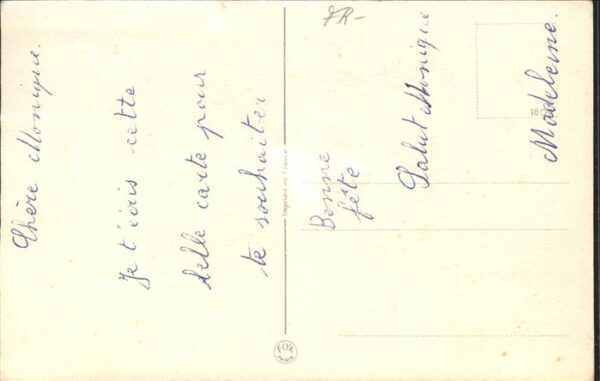 Chère Monique.
Je t'écris cette
belle carte pour
te souhaiter
Bonne
fête
Salut Monique
Madeleine.
7R-
Imprimé en France
FOX